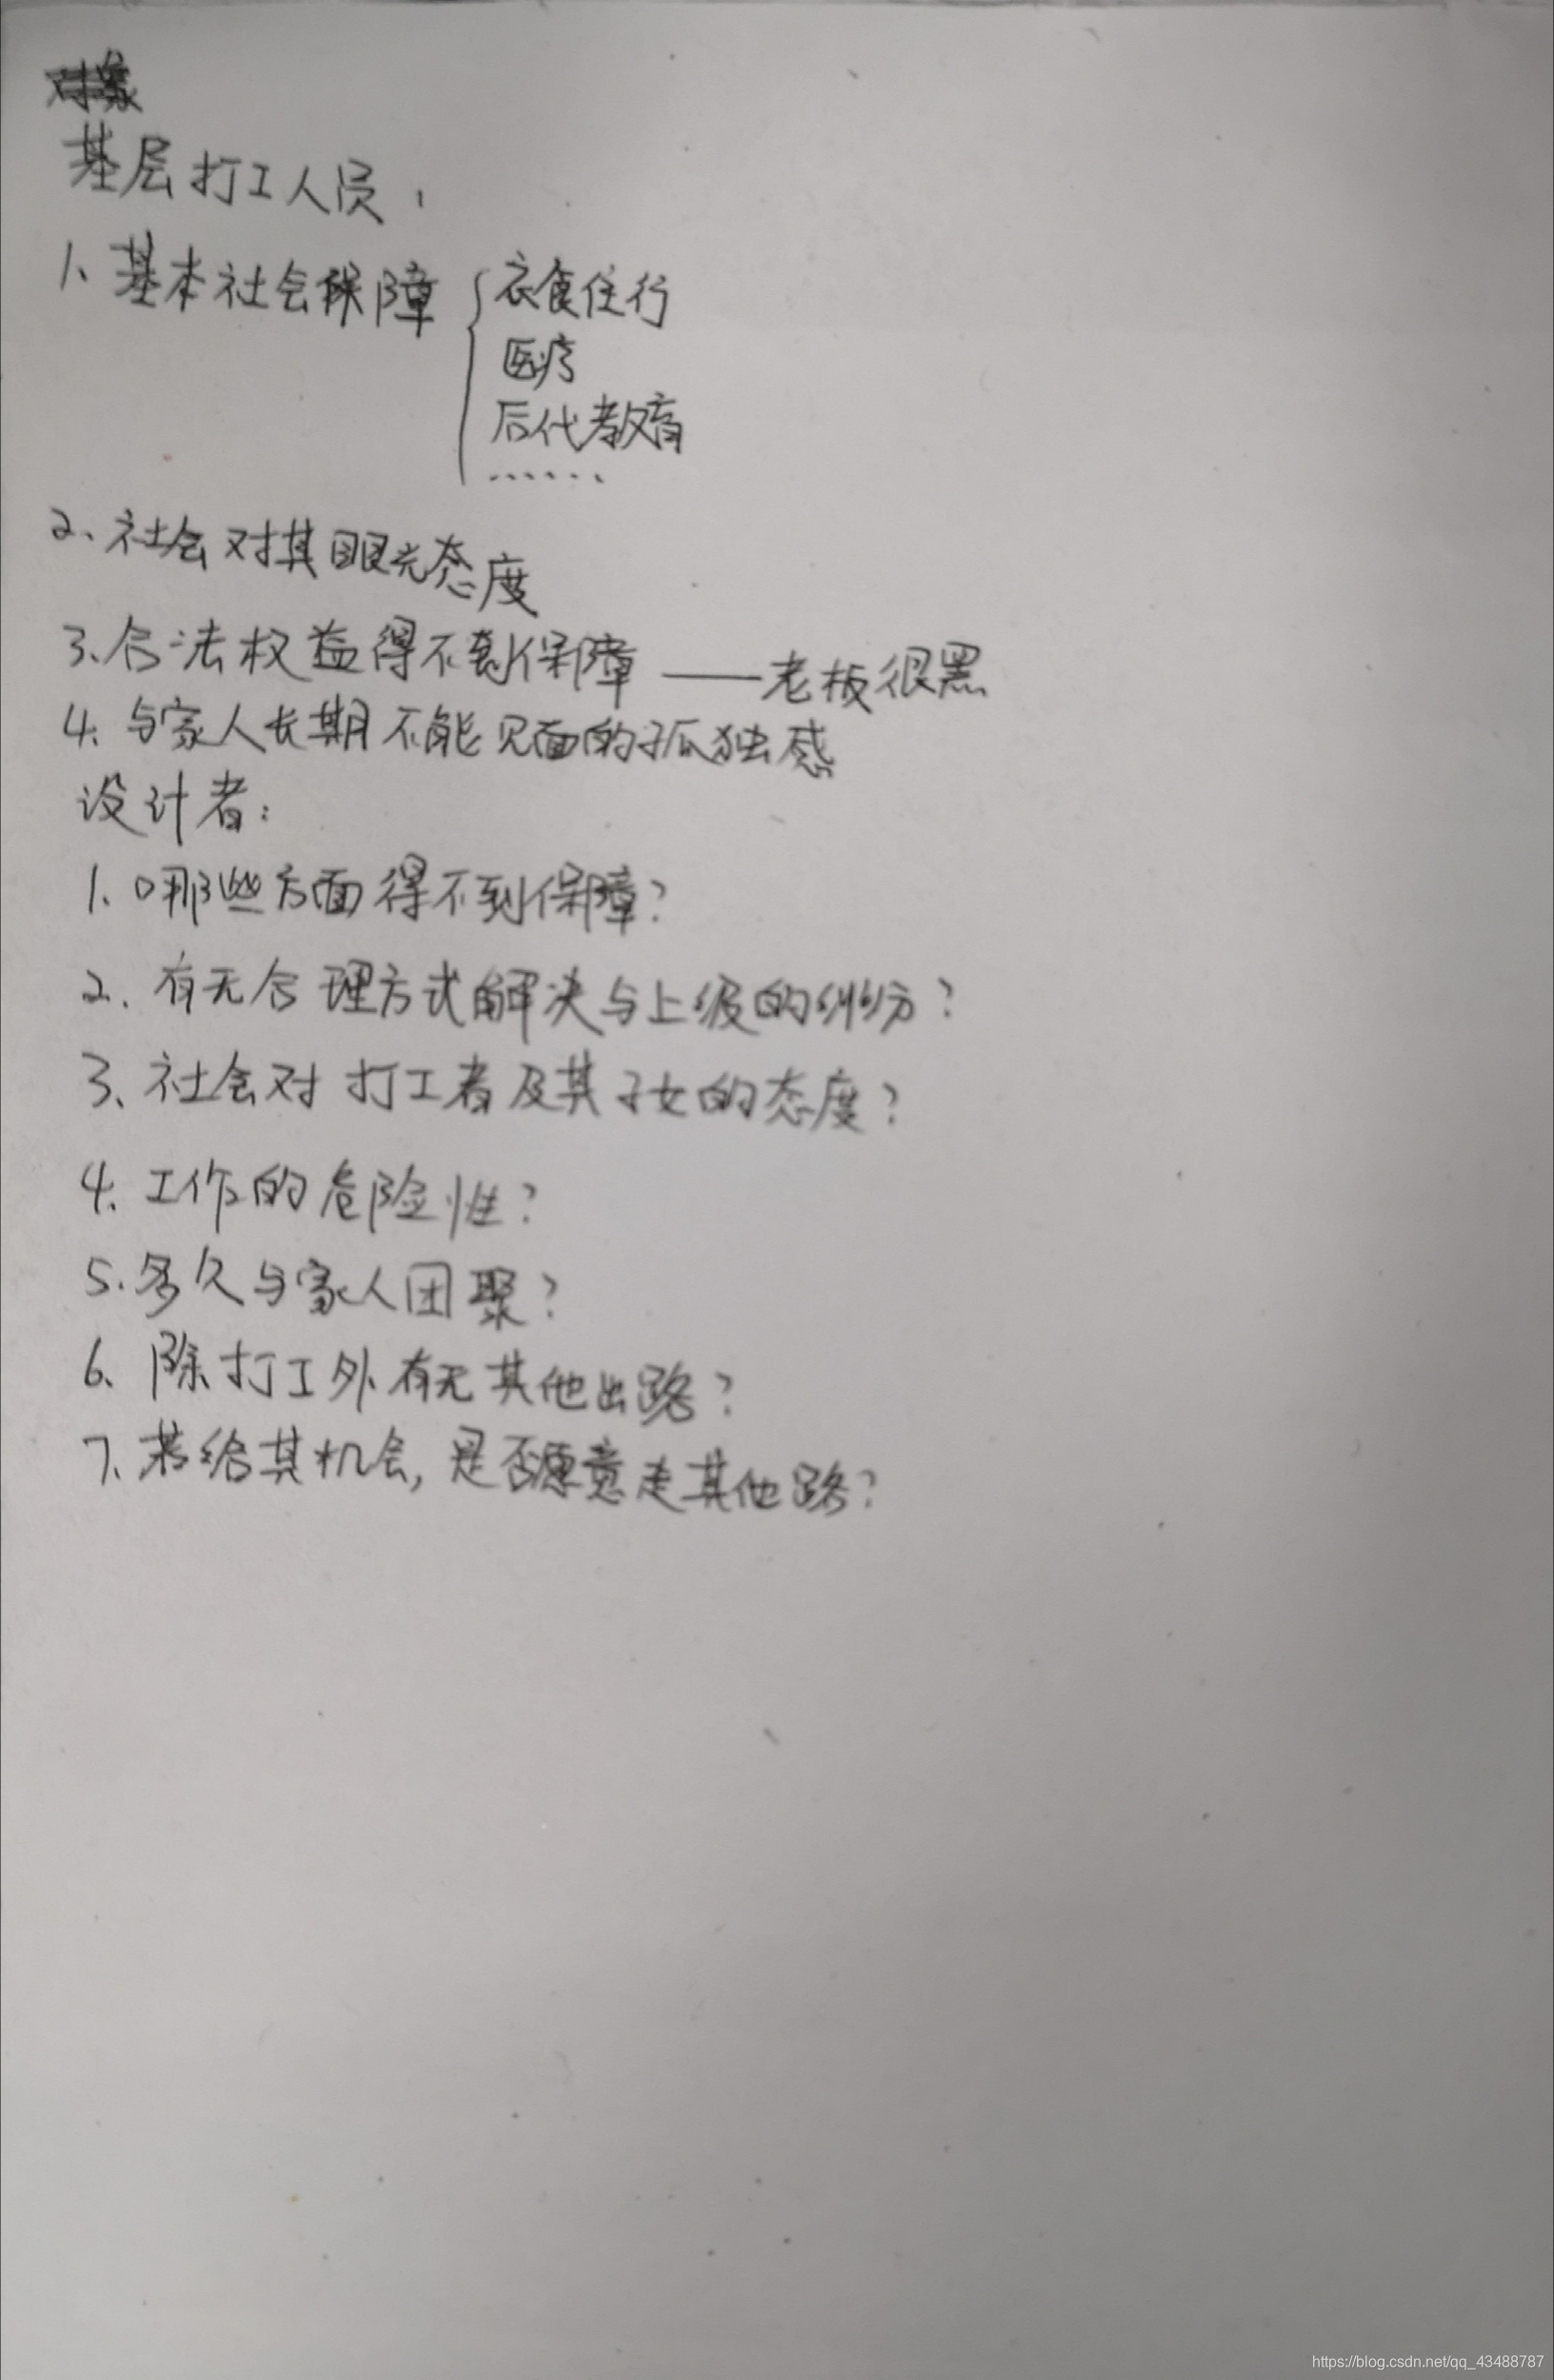 基层打工人员:
1、基本社会保障 { 衣食住行
医疗
后代教育
......
2、社会对其眼光态度
3、合法权益得不到保障 ——老板很黑
4、与家人长期不能见面的孤独感
设计者:
1、哪些方面得不到保障?
2、有无合理方式解决与上级的纠纷?
3、社会对打工者及其子女的态度?
4、工作的危险性?
5、多久与家人团聚?
6、除打工外有无其他出路?
7、若给其机会,是否愿意走其他路?
https://blog.csdn.net/qq_43488787